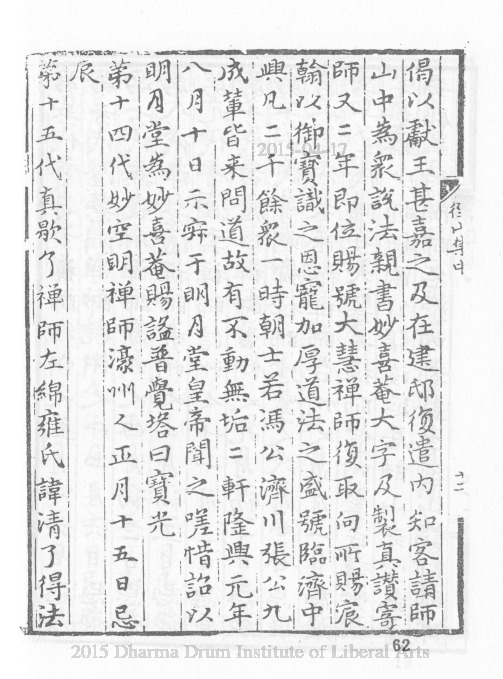 偈以獻王甚嘉之及在建邸復遣內知客請師
山中為衆說法親書妙喜菴大字及製真讃寄
師又二年即位賜號大慧禪師復取向所賜宸
翰以御寶識之恩寵加厚道法之盛號臨濟中
興凡二千餘衆一時朝士若馮公濟川張公九
成輩皆来問道故有不動無垢二軒隆興元年
八月十日示寂于明月堂皇帝聞之嗟惜詔以
明月堂為妙喜菴賜諡普覺塔曰寶光
第十四代妙空明禪師濠州人正月十五日忌
辰
第十五代真歇了禪師左綿雍氏諱清了得法
徑山集中
十二
62
2015-04-17
2015 Dharma Drum Institute of Liberal Arts